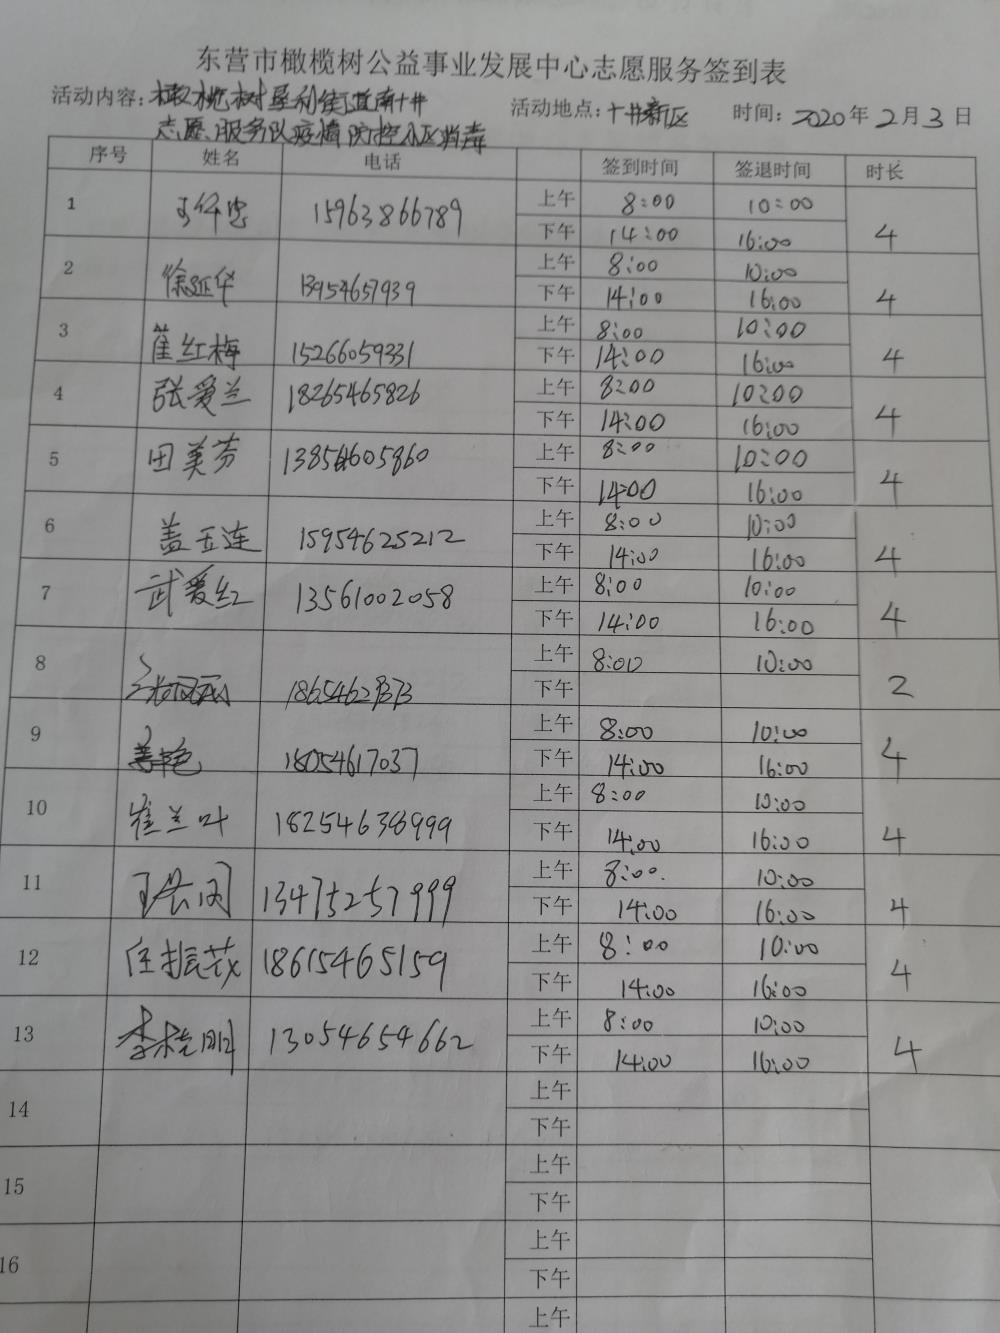 东营市橄榄树公益事业发展中心志愿服务签到表
活动内容：橄榄树垦利街道南十井 活动地点：十井新区 时间：2020年2月3日
志愿服务队疫情防控小区消毒
序号 姓名 电话 签到时间 签退时间 时长
1 15963866789 上午 8:00 10:00 4
下午 14:00 16:00
2 徐延华 13954657939 上午 8:00 10:00 4
下午 14:00 16:00
3 崔红梅 15266059331 上午 8:00 10:00 4
下午 14:00 16:00
4 张爱兰 18265465826 上午 8:00 10:00 4
下午 14:00 16:00
5 田美芬 上午 8:00 10:00 4
下午 14:00 16:00
6 盖玉连 15954625212 上午 8:00 10:00 4
下午 14:00 16:00
7 武爱红 13561002058 上午 8:00 10:00 4
下午 14:00 16:00
8 上午 8:00 10:00 2
下午
9 18054617037 上午 8:00 10:00 4
下午 14:00 16:00
10 崔兰叶 18254638999 上午 8:00 10:00 4
下午 14:00 16:00
11 13475257999 上午 8:00. 10:00 4
下午 14:00 16:00
12 任振茂 18615465159 上午 8:00 10:00 4
下午 14:00 16:00
13 李桂明 13054654662 上午 8:00 10:00 4
下午 14:00 16:00
14 上午
下午
15 上午
下午
16 上午
下午
上午